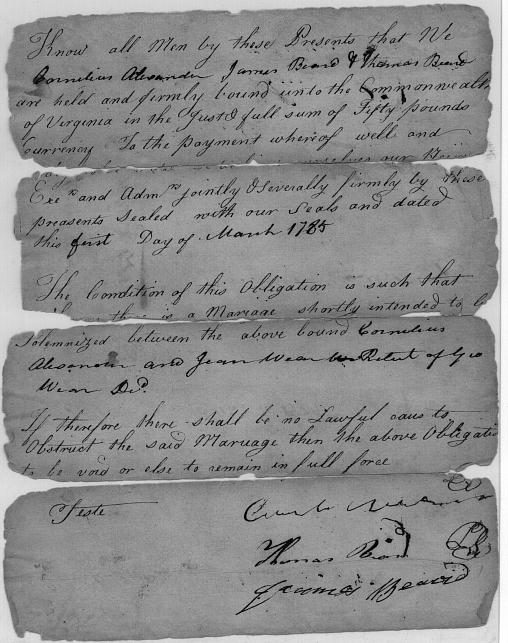 Know all Men by these Presents that We
Cornelius Alexander James Beard & Thomas Beard
are held and firmly bound unto the Commonwealth
of Virginia in the Just & full sum of Fifty pounds
Currency To the payment whereof well and
our Heirs
Exers and Admrs jointly & severally firmly by these
preasents Sealed with our Seals and dated
this first Day of March 1785
The Condition of this Obligation is such that
there is a Mariage shortly intended to be
Solemnized between the above bound Cornelius
Alexander and Jean Wear Relect of Geo
Wear Decd.
If therefore there shall be no Lawful caus to
Obstruct the said Mariage then the above Obligation
to be void or else to remain in full force
Teste
Thomas Beard
James Beard